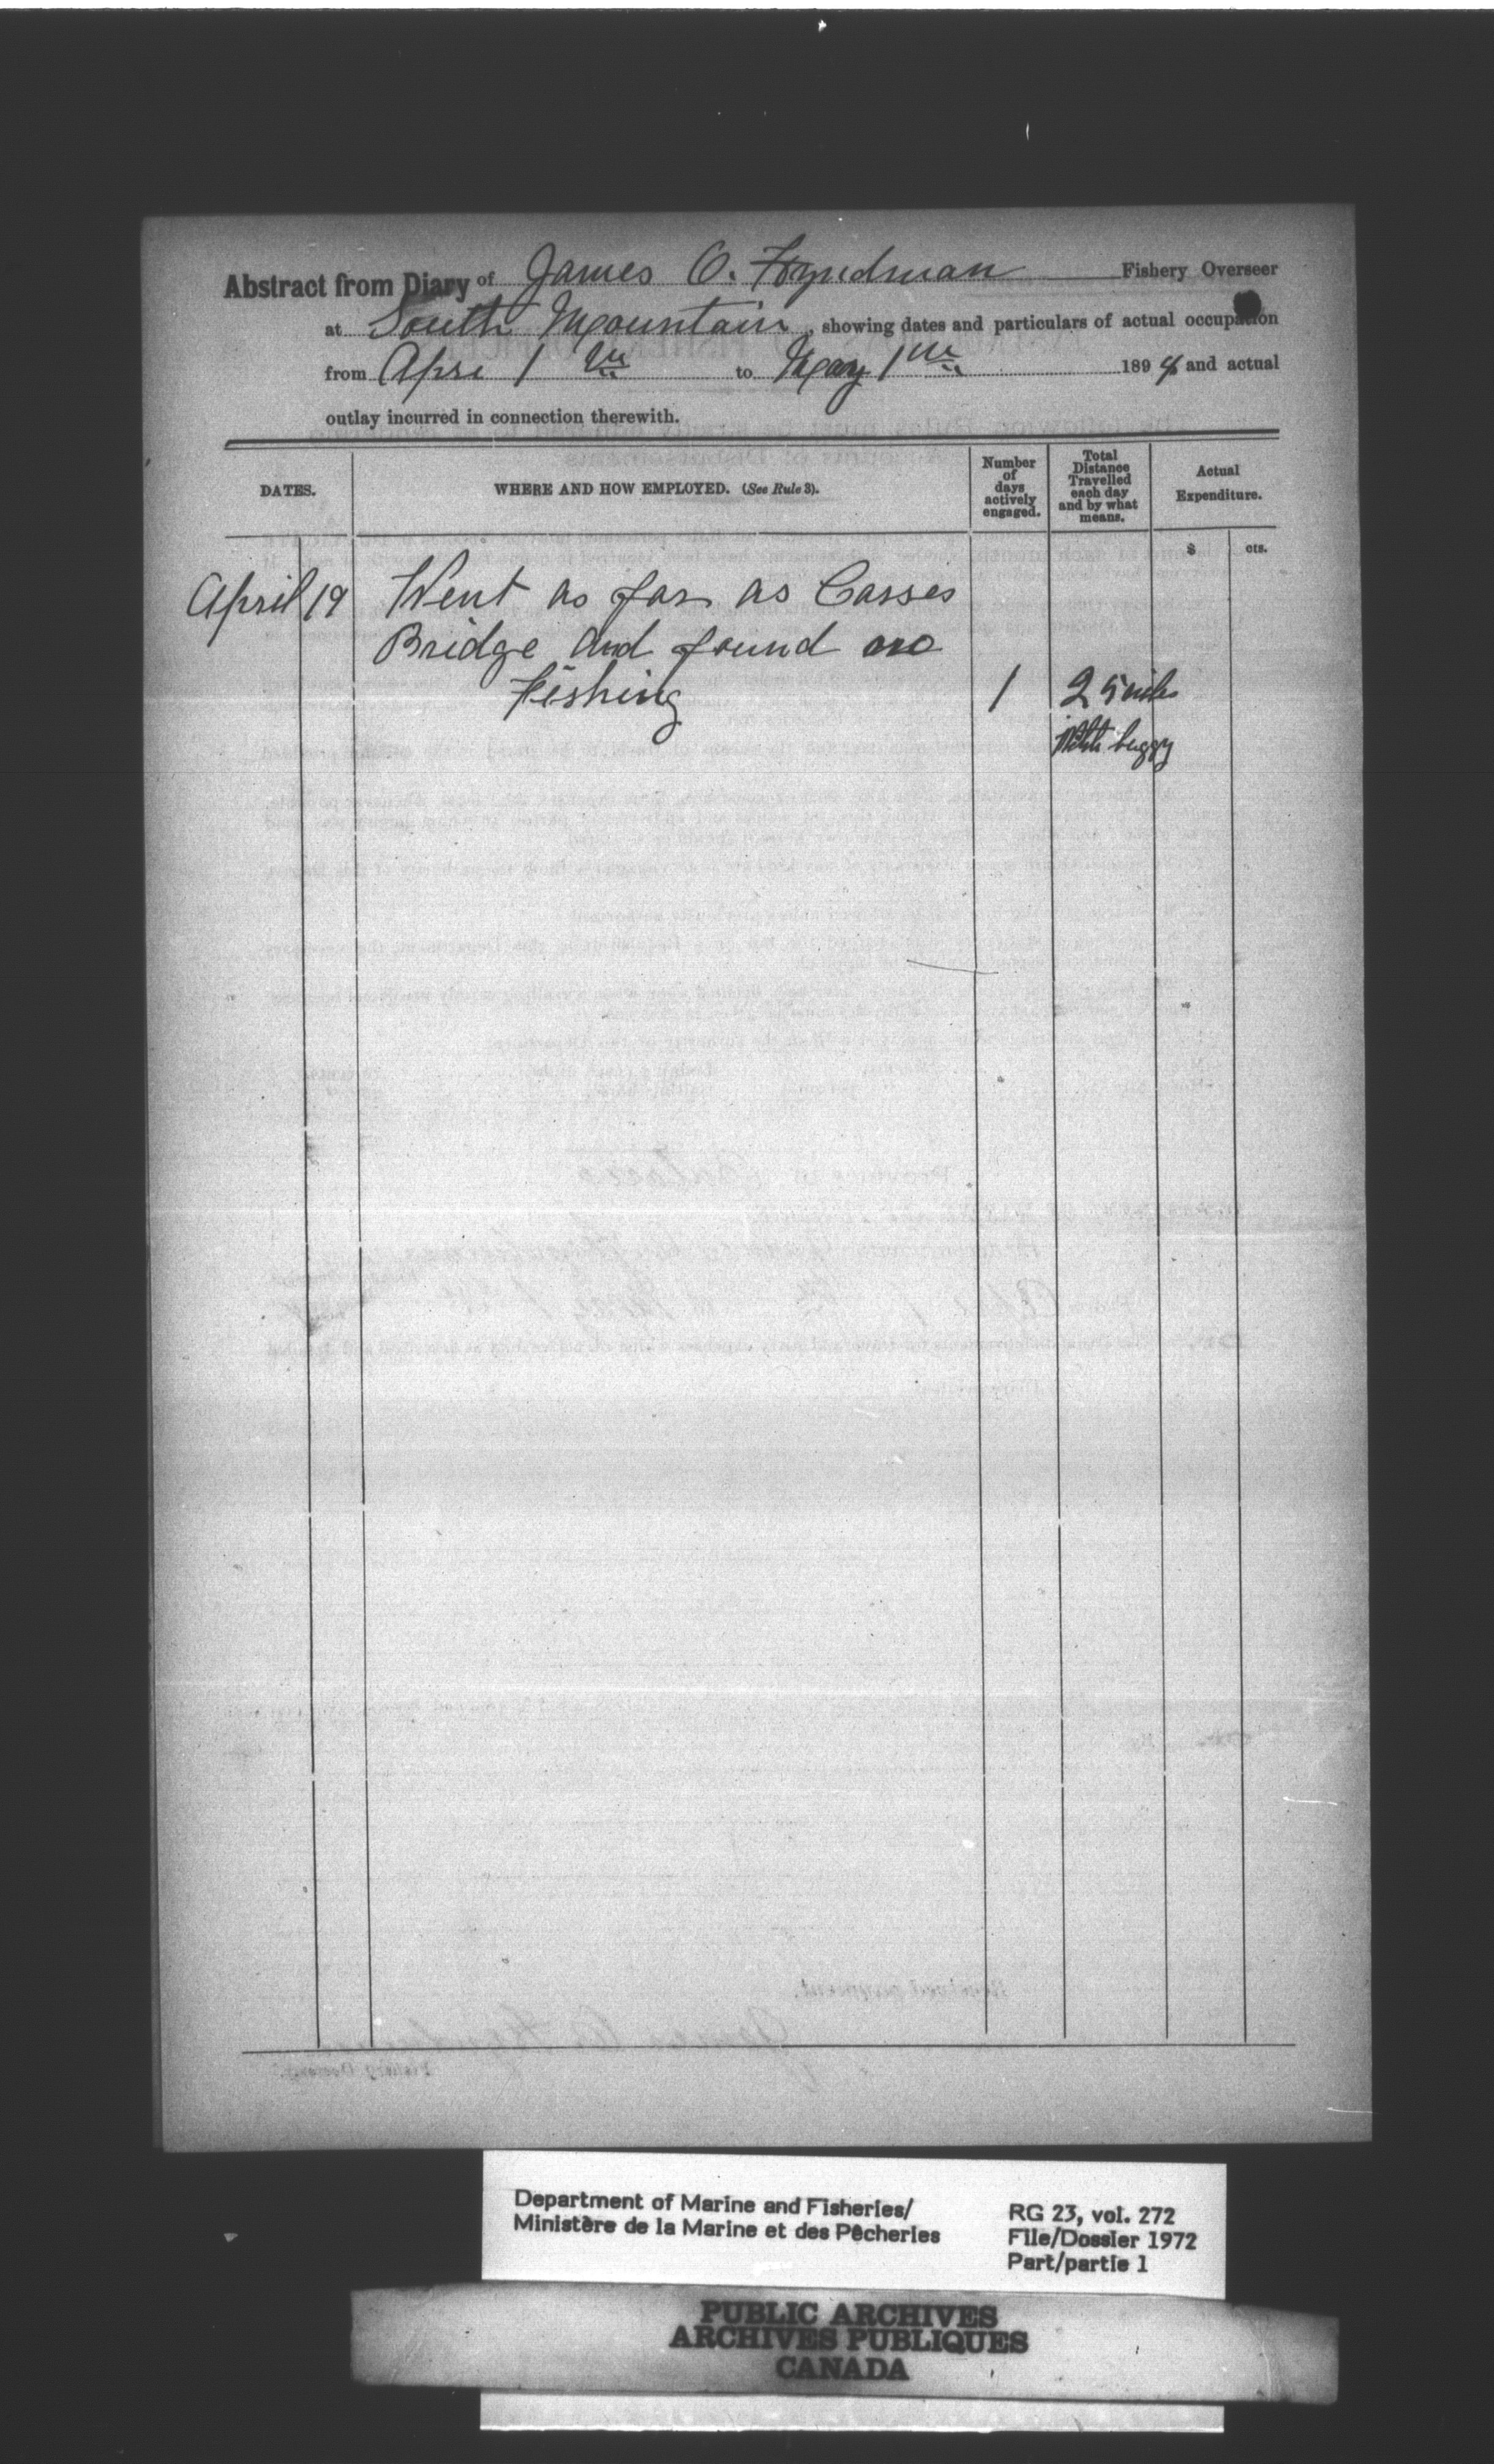 Abstract from Diary of James O. Hyndman Fishery Overseer
at South Mountain, showing dates and particulars of actual occupation
from Apri 1 to May 1 1894 and actual
outlay incurred in connection therewith.
DATES.
WHERE AND HOW EMPLOYED. (See Rule 3).
Number of days actively engaged.
Total Distance Travelled each day and by what means.
Actual Expenditure.
$ cts.
April 19 Went as far as Casses
Bridge and found no
Fishing 1 25 miles
With buggy
Department of Marine and Fisheries/
Ministère de la Marine et des Pêcheries
RG 23, vol. 272
File/Dossier 1972
Part/partie 1
PUBLIC ARCHIVES
ARCHIVES PUBLIQUES
CANADA